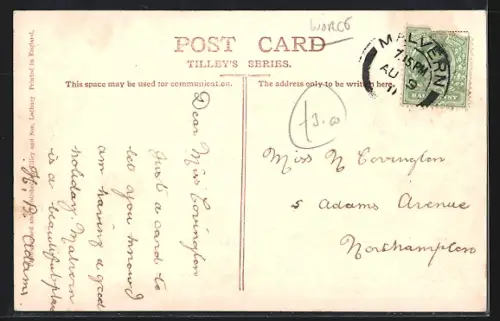 Worcs
POST CARD
TILLEY'S SERIES.
This space may be used for communication.
The address only to be written here.
MALVERN
7.15 PM
AU 9
11
£3.00
Dear Miss Covington
Just a card to
let you know I
am having a good
holiday. Malvern
is a beautiful place
H. B. Adams.
Miss N Covington
5 Adams Avenue
Northampton
Tilley and Son, Ledbury Printed in England.